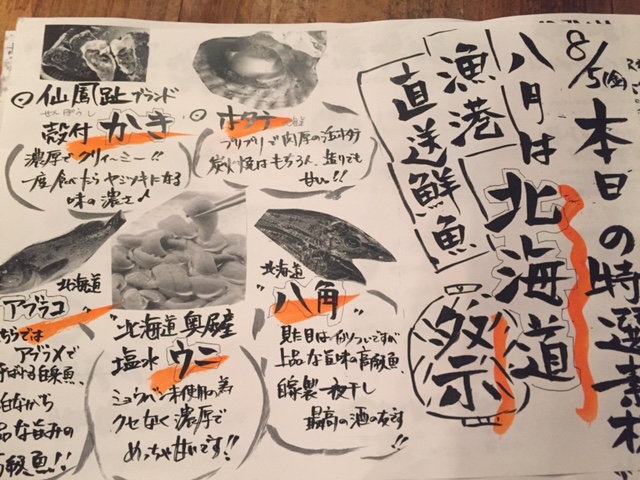 8/5(金)
本日の特選素材
八月は北海道
祭
漁港
直送鮮魚
仙鳳趾ブランド
殻付 かき
濃厚でクリィーミー!!
一度食べたらヤミツキになる
味の濃さ♪
ホタテ
プリプリで肉厚の活ホタテ
炭火焼はもちろん、造りでも
甘い!!
北海道
八角
見た目は
上品な旨味の高級魚、
自家製一夜干し
最高の酒の友です
!!
北海道 奥尻産
塩水 ウニ
ミョウバン未使用の為
クセなく濃厚で
めっちゃ甘いです!!
北海道
アブラコ
ちらでは
アブラメで
ばれる白身魚、
白ながら
品な旨みの
級魚!!